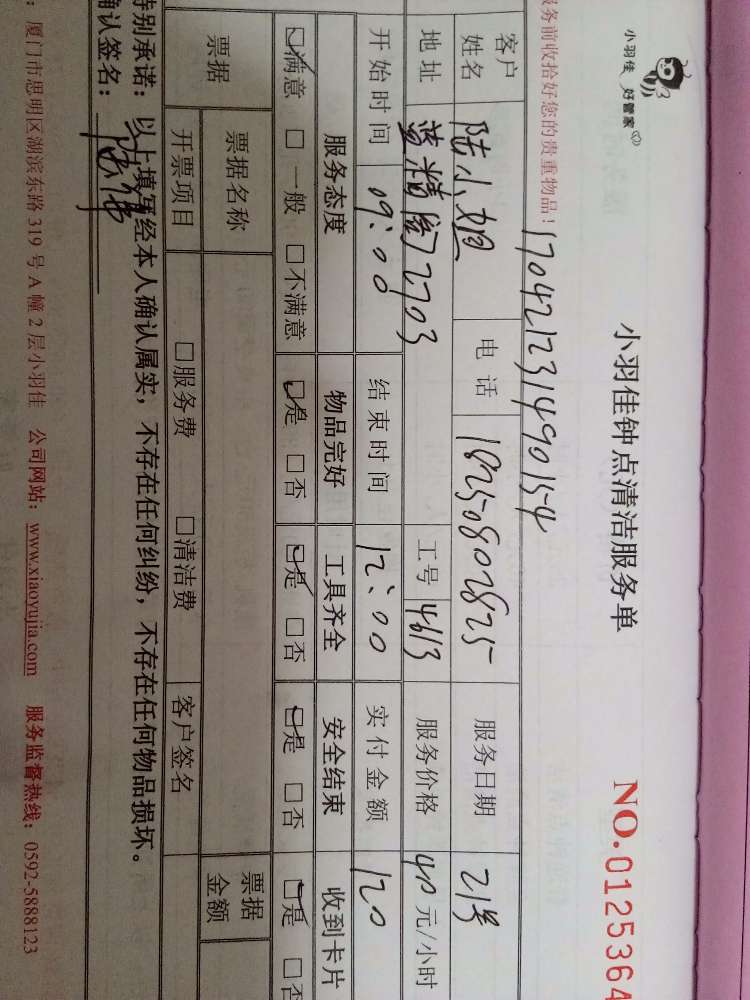 小羽佳 好管家
小羽佳钟点清洁服务单
NO.0125364
务前收拾好您的贵重物品！
170421231490154
客户姓名 陆小姐 电话 18250802825 服务日期 21号
地址 蓝精阁2703 工号 4613 服务价格 40元/小时
开始时间 09:00 结束时间 12:00 实付金额 120
服务态度 物品完好 工具齐全 安全结束 收到卡片
☑满意 □一般 □不满意 ☑是 □否 ☑是 □否 ☑是 □否 ☑是 □否
票据 票据名称 票据金额
开票项目 □服务费 □清洁费 客户签名
特别承诺：以上填写经本人确认属实，不存在任何纠纷，不存在任何物品损坏。
确认签名：
：厦门市思明区湖滨东路 319 号 A 幢 2 层小羽佳 公司网站：www.xiaoyujia.com 服务监督热线：0592-5888123